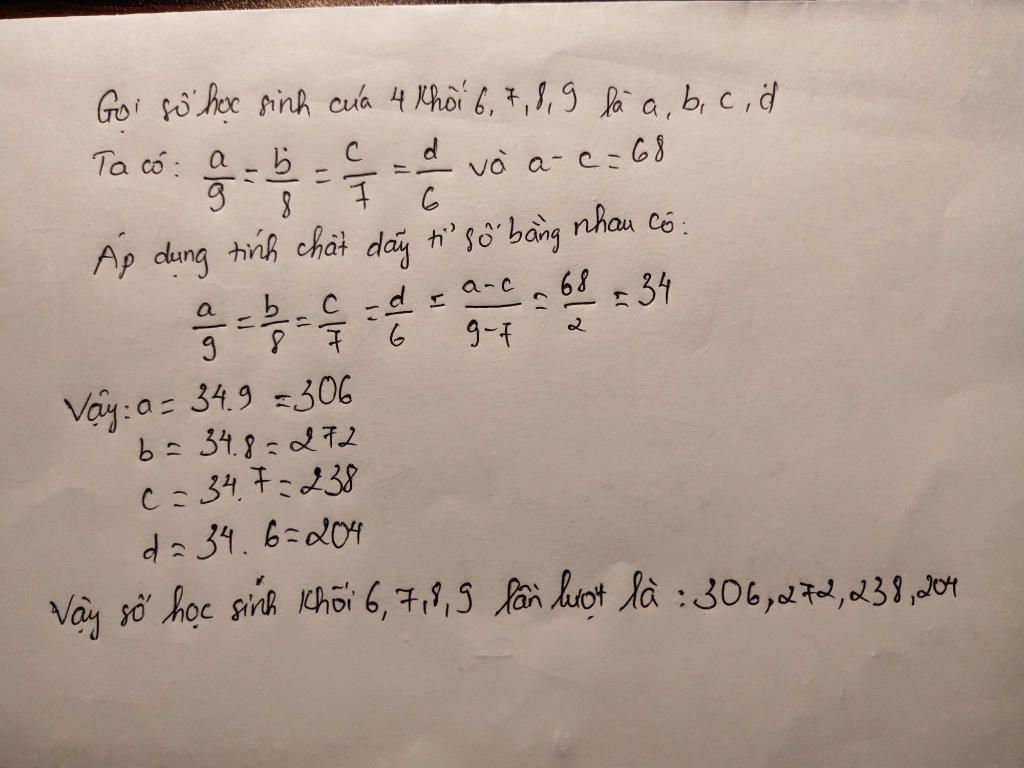 Gọi số học sinh cuả 4 khối 6, 7, 8, 9 là a, b, c, d
Ta có: a/9 = b/8 = c/7 = d/6 và a - c = 68
Áp dụng tính chất dãy tỉ số bằng nhau có:
a/9 = b/8 = c/7 = d/6 = a-c/9-7 = 68/2 = 34
Vậy: a = 34.9 = 306
b = 34.8 = 272
c = 34.7 = 238
d = 34.6 = 204
Vậy số học sinh khối 6, 7, 8, 9 lần lượt là : 306, 272, 238, 204